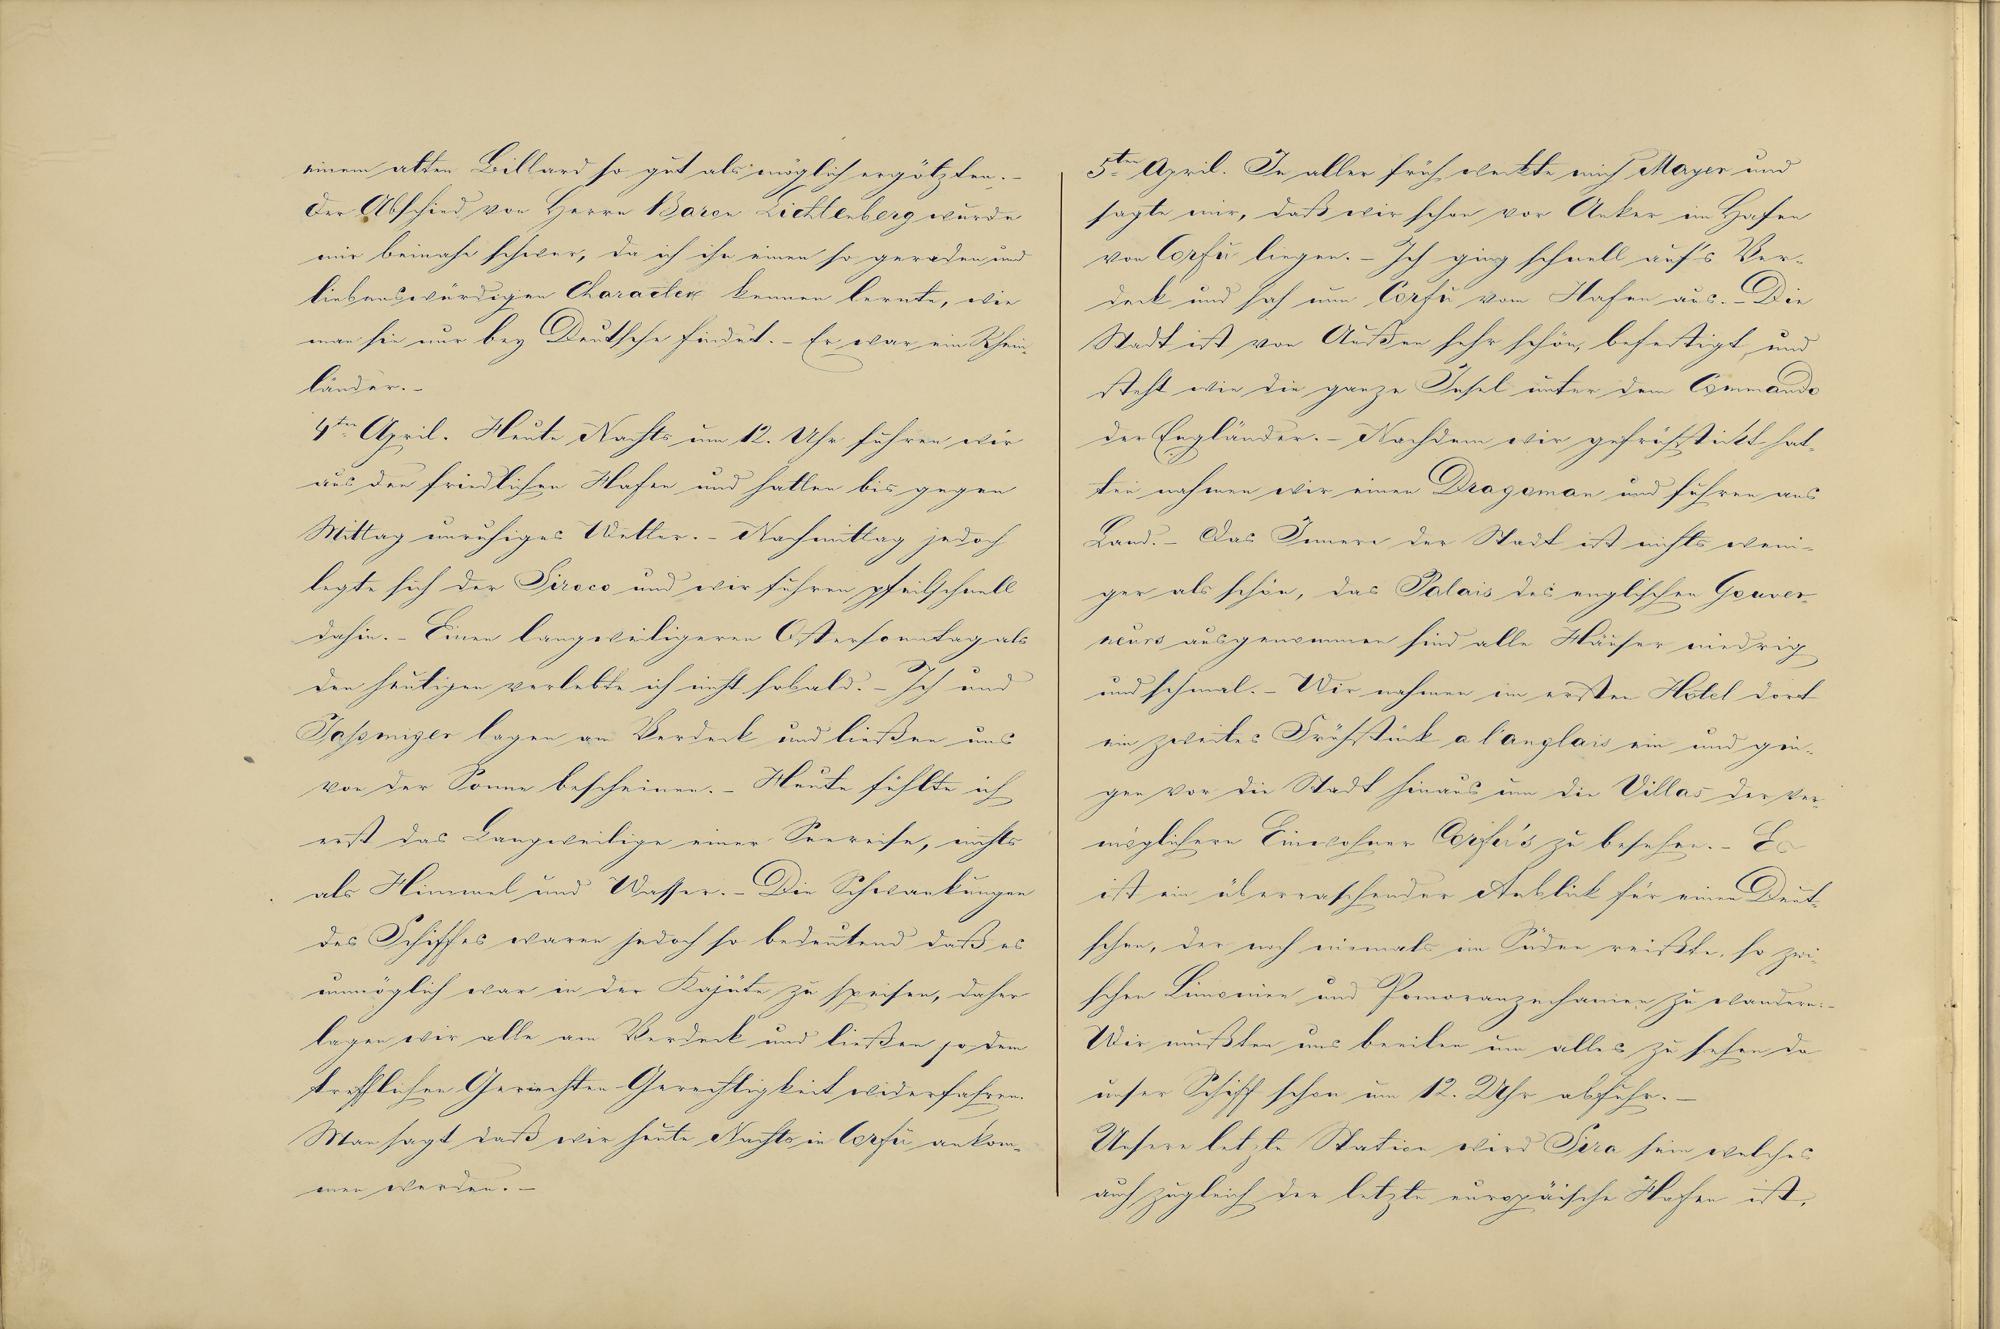 einem alten Billard so gut als möglich ergötzten. –
Der Abschied von Herrn Baron Lichtenberg wurde
mir beinahe schwer, da ich ihn einen so geraden und
liebenswürdigen Character kennen lernte, wie
man sie nur bey Deutsche findet. – Er war ein Rhein-
länder. –
4ten April. Heute Nachts um 12. Uhr fuhren wir
aus den friedlichen Hafen und hatten bis gegen
Mittag unruhiges Wetter. – Nachmittag jedoch
legte sich der Siroco und wir fuhren pfeilschnell
dahin. – Einen langweiligeren Ostersonntag als
den heutigen verlebte ich nicht sobald. – Ich und
lagen am Verdeck und ließen uns
von der Sonne bescheinen. – Heute fühlte ich
erst das Langweilige einer Seereise, nichts
als Himmel und Wasser. – Die Schwankungen
des Schiffes waren jedoch so bedeutend daß es
unmöglich war in der Kajüte zu speisen, daher
lagen wir alle am Verdeck und ließen so dem
trefflichen Gerichten Gerechtigkeit widerfahren.
Man sagt daß wir heute Nachts in Corfu ankom-
men werden. –
5ten April. In aller früh weckte mich Mayer und
sagte mir, daß wir schon vor Anker im Hafen
von Corfu liegen. – Ich ging schnell auf's Ver-
deck und sah nun Corfu vom Hafen aus. – Die
Stadt ist von Außen sehr schön, befestigt und
steht wie die ganze Insel unter dem Commando
der Engländer. – Nachdem wir gefrühstückt hat-
ten nahmen wir einen Dragoman und fuhren ans
Land. – Das Innere der Stadt ist nichts weni-
ger als schön, das Palais des englischen Gouver-
neurs ausgenommen sind alle Häuser niedrig
und schmal. – Wir nahmen im ersten Hotel dort
ein zweites Frühstück a l'anglais ein und gin-
gen vor die Stadt hinaus um die Villas der ver-
möglichern Einwohner Corfu's zu besehen. – Es
ist ein überraschender Anblick für einen Deut-
schen, der noch niemals im Süden reißte, so zwi-
schen Limonien und Pomoranzenhainen zu wandern. –
Wir mußten uns beeilen um alles zu sehen da
unser Schiff schon um 12. Uhr abfuhr. –
Unsere letzte Station wird Sira sein welches
auch zugleich der letzte europäische Hafen ist,